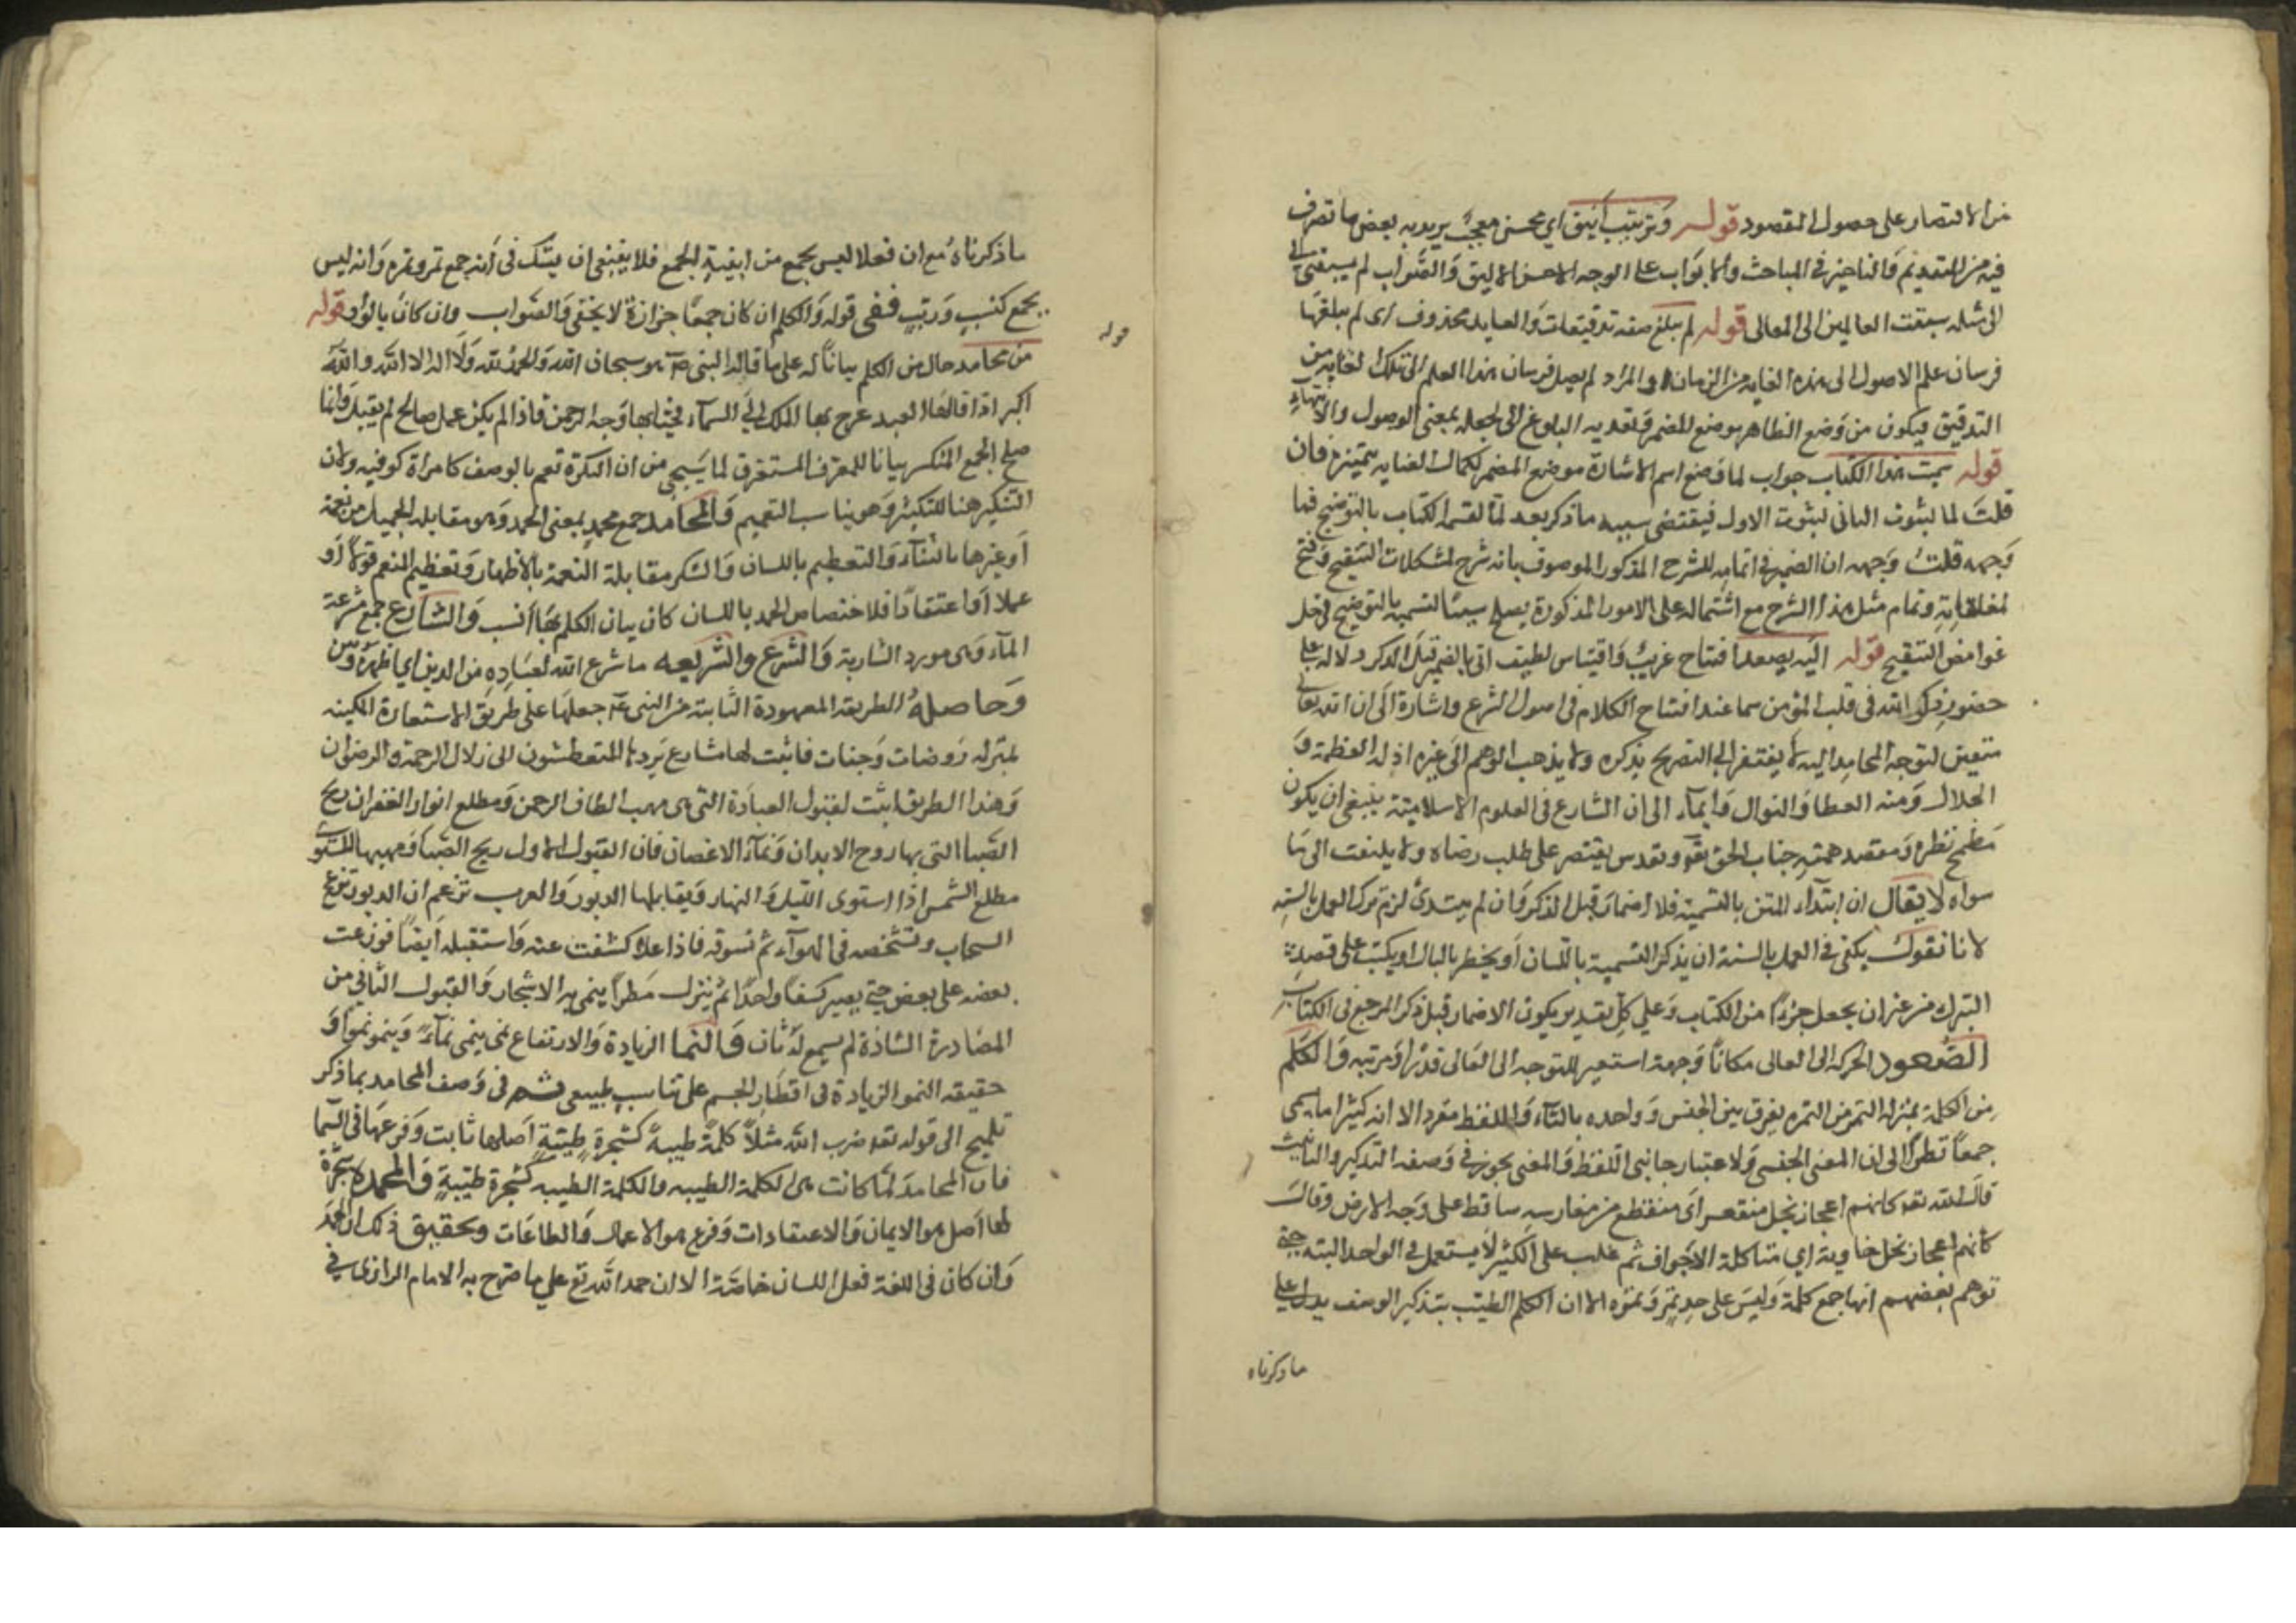 من الاقتصار على حصول المقصود قوله وترتيب انيق اي حسن معجب يريد به بعض ما تصرف
فيه من التقديم والتاخير في المباحث والابواب على الوجه الاحسن الاليق والصواب لم يسبقني
الى مثله سبقت العالمين الى المعالى قوله لم يبلغ صفة تدقيقات والعايد محذوف اى لم يبلغها
فرسان علم الاصول الى هذه الغاية من الزمان او المراد لم يصل فرسان هذا العلم الى تلك الغاية من
التدقيق فيكون من وضع الظاهر موضع المضمر وتعدية البلوغ بالى لجعله بمعنى الوصول والانتهاء
قوله سميت هذا الكتاب جواب لما وضع اسم الاشارة موضع المضمر لكمال العناية بتمييزه فان
قلت لما لثبوت الثانى لثبوت الاول فيقتضى سببية ما ذكر بعد لما لتسمية الكتاب بالتوضيح فما
وجهه قلت وجهه ان الضمير في اتمامه للشرح المذكور الموصوف بانه شرح لمشكلات التنقيح وفتح
لمغلقاته وتمام مثل هذا الشرح مع اشتماله على الامور المذكورة يصلح سببا لتسميته بالتوضيح في حل
غوامض التنقيح قوله اليه يصعد افتتاح غريب واقتباس لطيف اتى بالضمير قبل الذكر دلالة على
حضور ذكر الله فى قلب المؤمن سيما عند افتتاح الكلام فى اصول الشرع واشارة الى ان الله تعالى
متعين لتوجه المحامد اليه لا يفتقر الى التصريح بذكره ولا يذهب الوهم الى غيره اذ له العظمة و
الجلال ومنه العطا والنوال وايماء الى ان الشارع فى العلوم الاسلامية ينبغى ان يكون
مطمح نظره ومقصد همته جناب الحق تع وتقدس يقتصر على طلب رضاه ولا يلتفت الى ما
سواه لا يقال ان ابتداء المتن بالتسمية فلا اضمار قبل الذكر وان لم يبتدئ لزم ترك العمل بالسنة
لانا نقول يكفى في العمل بالسنة ان يذكر التسمية باللسان او يخطر بالبال او يكتب على قصد
التبرك من غير ان يجعل جزءا من الكتاب وعلى كل تقدير يكون الاضمار قبل ذكر المرجع فى الكتاب
الصعود الحركة الى العالى مكانا وجهة استعير للتوجه الى العالى قدرا ومرتبة والكلم
من الكلمة بمنزلة التمر من التمرة يفرق بين الجنس وواحده بالتاء واللفظ مفرد الا انه كثيرا ما يسمى
جمعا نظرا الى ان المعنى الجنسى ولاعتبار جانبى اللفظ والمعنى يجوز في وصفه التذكير والتانيث
قال الله تعه كانهم اعجاز نخل منقعر اى منقطع من مغارسه ساقط على وجه الارض وقال
كانهم اعجاز نخل خاوية اي متاكلة الاجواف ثم غلب على الكثير لا يستعمل في الواحد البتة حتى
توهم بعضهم انها جمع كلمة وليس على حد تمر وتمرة الا ان الكلم الطيب بتذكير الوصف يدل على
ما ذكرناه
ما ذكرناه مع ان فعلا ليس بجمع من ابنية الجمع فلا ينبغى ان يشك فى انه جمع تمر وتمرة وانه ليس
بجمع كنسب ورتب ففى قوله والكلم ان كان جمعا حزازة لا يخفى والصواب وان كان بالواو قوله
قوله
من محامد حال من الكلم بيانا له على ما قال النبى صه هو سبحان الله والحمد لله ولا اله الا الله والله
اكبر اذا قالها العبد عرج بها الملك الى السماء فحيّا بها وجه الرحمن فاذا لم يكن عمل صالح لم يقبل وانما
صلح الجمع المنكر بيانا للمعرف المستغرق لما يسيجئ من ان النكرة تعم بالوصف كامراة كوفية ولان
التنكير هنا للتكثير وهو يناسب التعميم والمحامد جمع محمدٍ بمعنى الحمد وهو مقابلة الجميل من نعمة
او غيرها بالثناء والتعظيم باللسان والشكر مقابلة النعمة بالاظهار وتعظيم المنعم قولا او
عملا او اعتقادا فلاختصاص الحمد باللسان كان بيان الكلم بها انسب والشارع جمع مشرعة
الماء وهى مورد الشاربة والشرع والشريعه ما شرع الله لعباده من الدين اي اظهر وبين
وحاصله الطريقة المعهودة الثابتة من النبى عم جعلها على طريق الاستعارة المكنية
بمنزلة روضات وجنات فاثبت لها مشارع يردها المتعطشون الى زلال الرحمة والرضوان
وهذا الطريق اثبت لقبول العبادة التى هى مهب الطاف الرحمن ومطلع انوار الغفران ريح
الصبا التى بها روح الابدان ونماء الاغصان فان القبول الاول ريح الصبا ومهبها المستوى
مطلع الشمس اذا استوى الليل والنهار ويقابلها الدبور والعرب تزعم ان الدبور تزعج
السحاب وتشخصه فى الهواء ثم تسوقه فاذا علا كشفت عنه واستقبله ايضا فوزعت
بعضه على بعض حتى يصير كسفا واحدا ثم ينزل مطرا ينمى به الاشجار والقبول الثانى من
المصادرة الشاذة لم يسمع له ثان والنما الزيادة والارتفاع نمى ينمى نماء وينمو نموا و
حقيقة النمو الزيادة فى اقطار الجسم على تناسب طبيعى ثم فى وصف المحامد بما ذكر
تلميح الى قوله تعه ضرب الله مثلا كلمة طيبة كشجرة طيبة اصلها ثابت وفرعها فى السما
فان المحامد لما كانت هى الكلمة الطيبه والكلمة الطيبه كشجرة طيبة فالمحمدة شجرة
لها اصل هو الايمان والاعتقادات وفرع هو الاعمال والطاعات وتحقيق ذلك ان الحمد
وان كان فى اللغة فعل اللسان خاصة الا ان حمد الله تع على ما صرح به الامام الرازى في